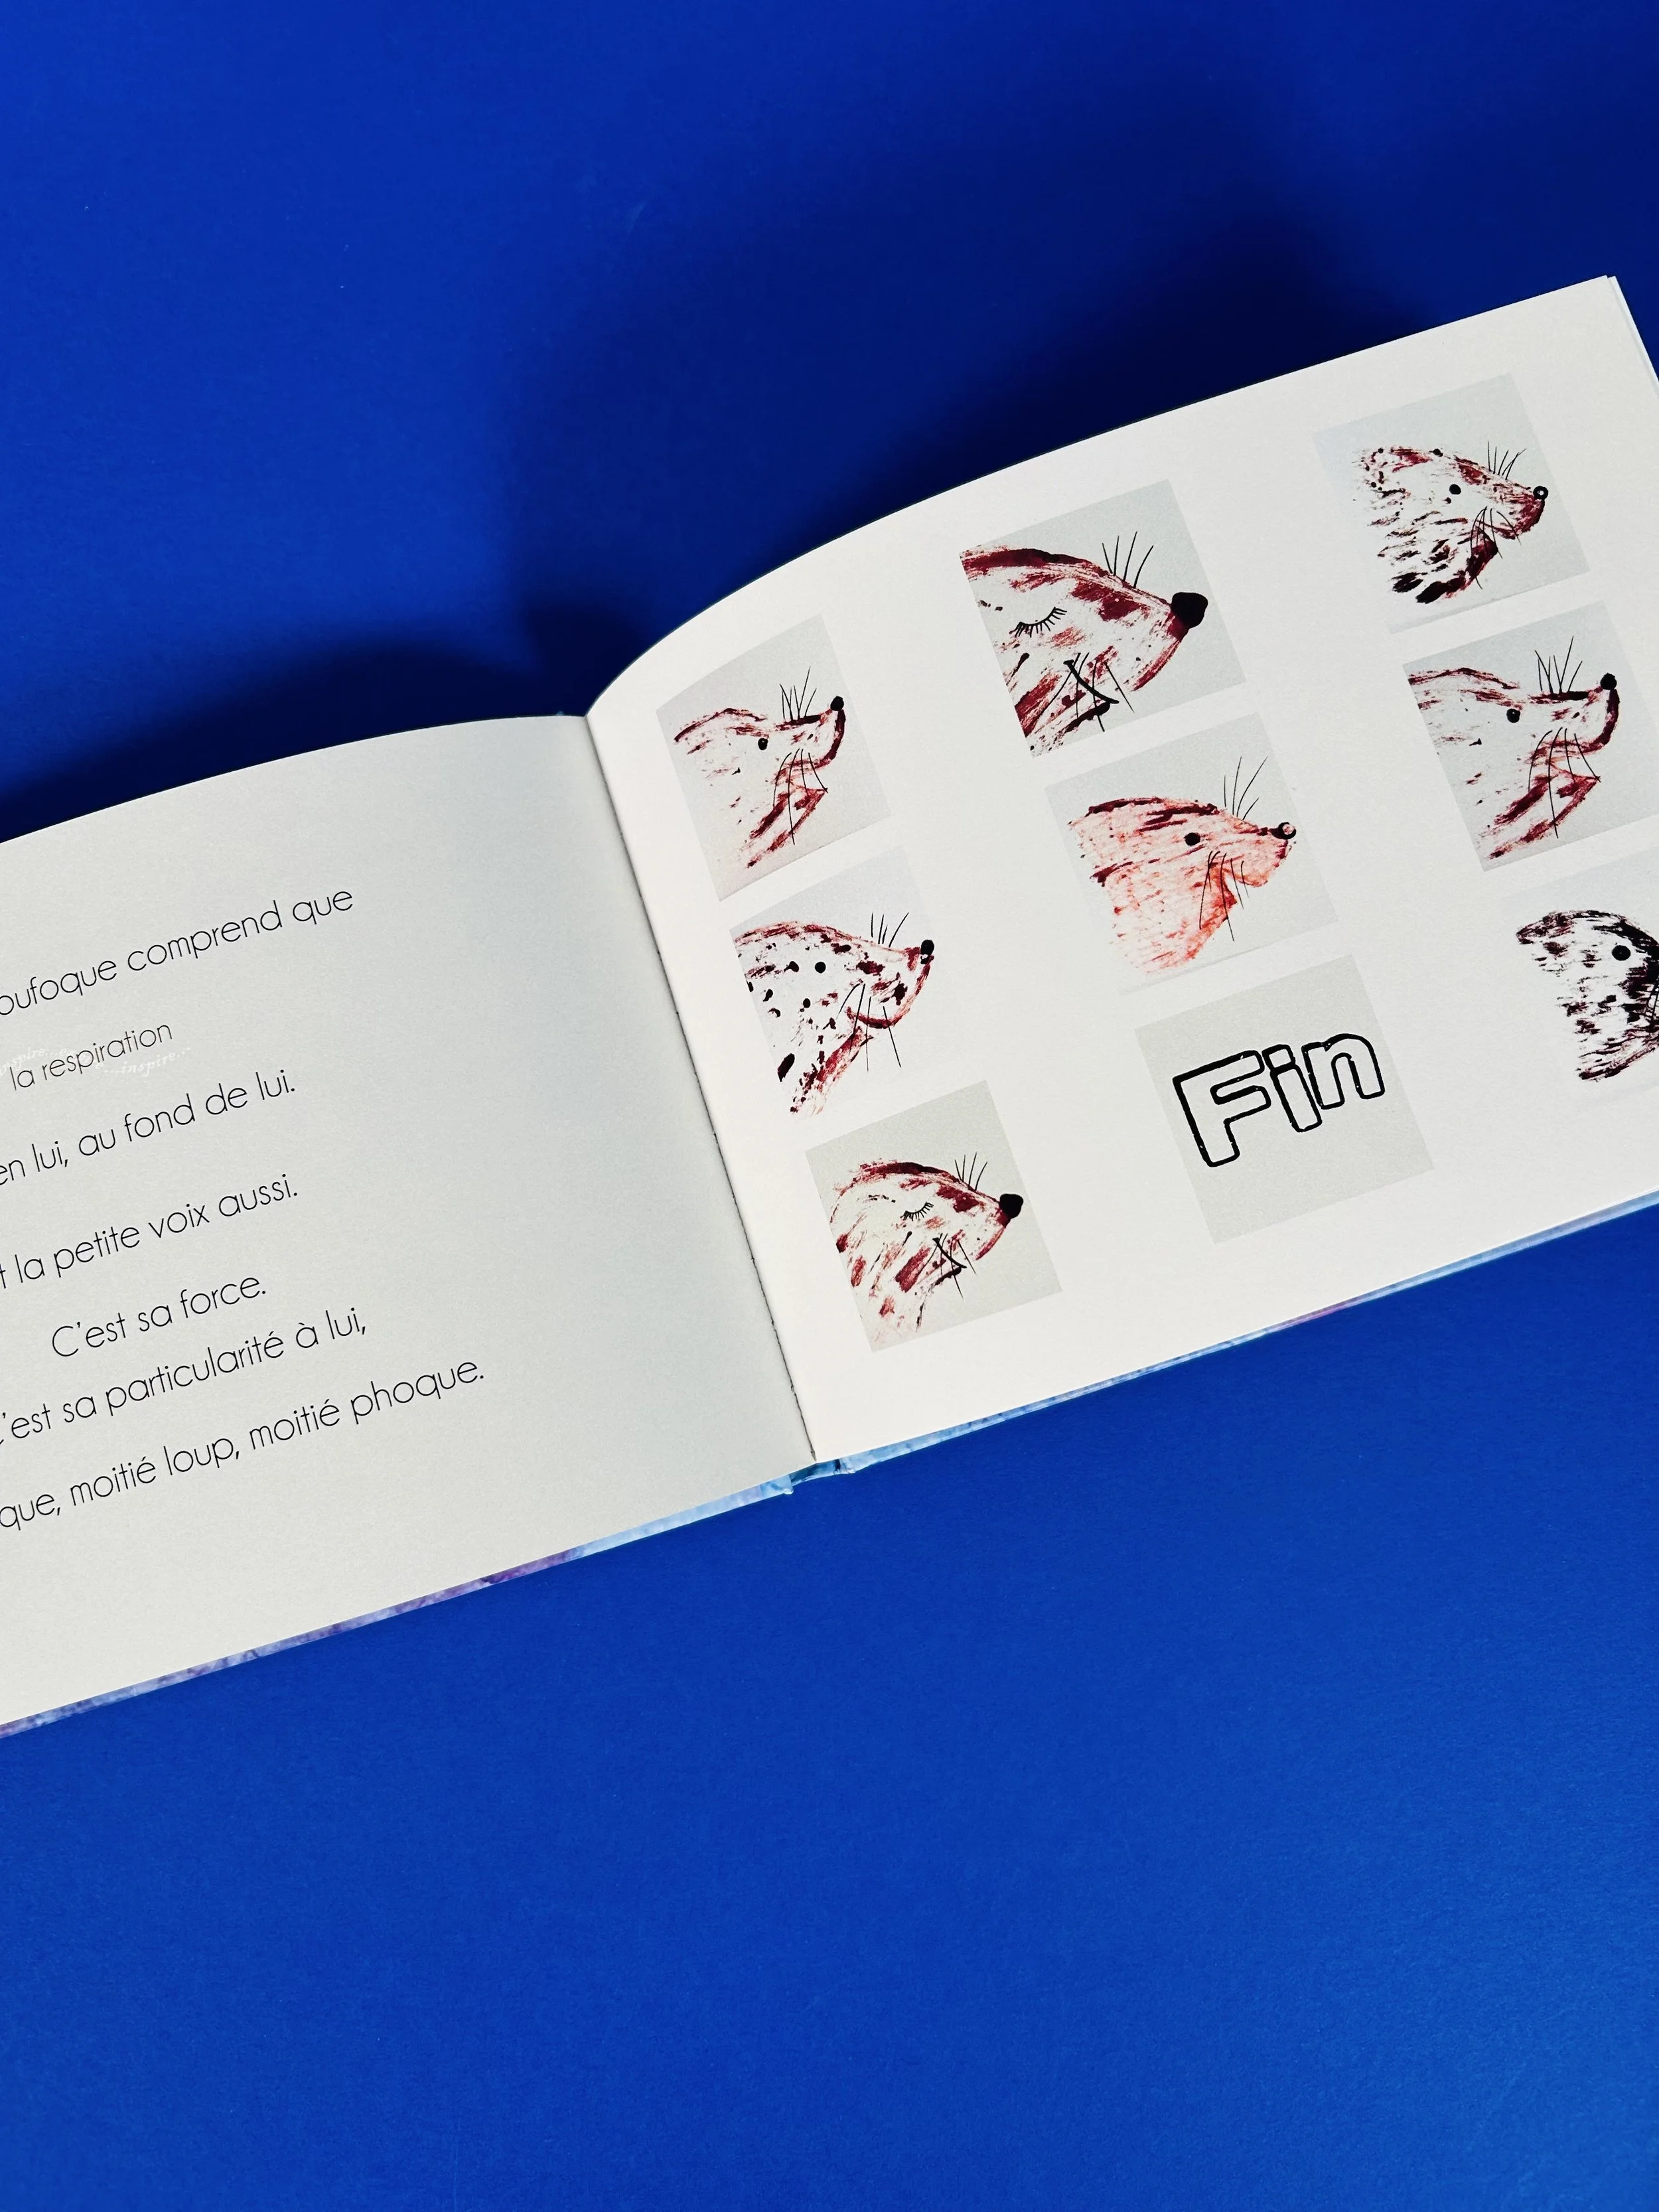 oufoque comprend que
la respiration
...inspire...
en lui, au fond de lui.
t la petite voix aussi.
C'est sa force.
C'est sa particularité à lui,
que, moitié loup, moitié phoque.
Fin